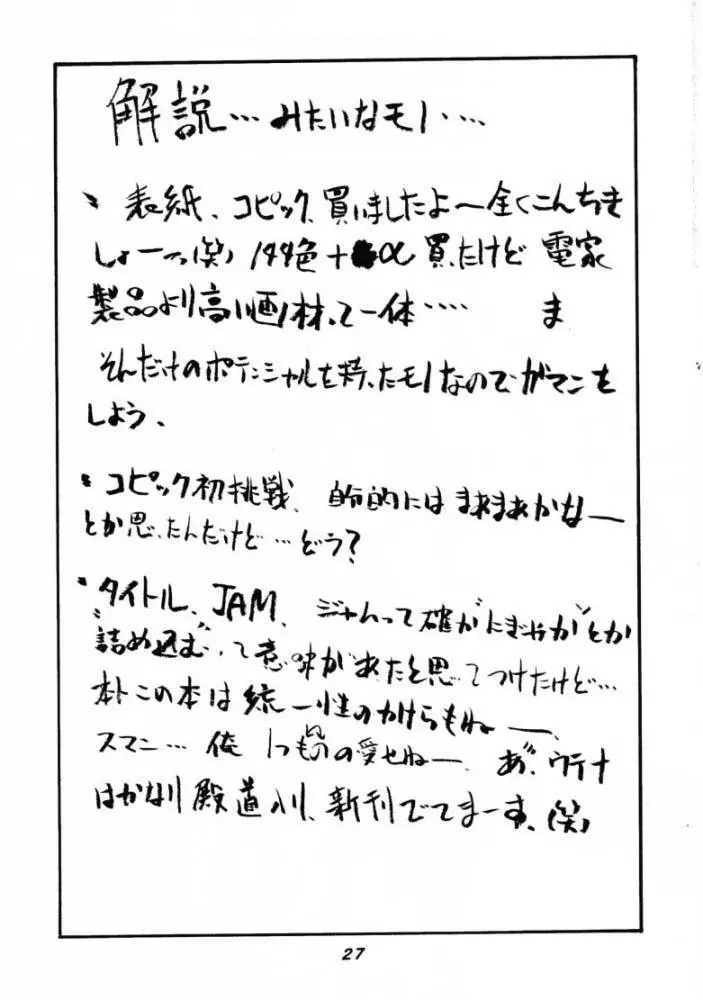 解説…みたいなモノ….
・表紙、コピック、買いましたよ〜全くこんちき
しょーっ(笑) 144色+α買ったけど 電家
製品より高い画材って一体‥‥ ま
そんだけのポテンシャルを持ったモノなのでガマンを
しよう、
・コピック初挑戦、自分的にはまあまあかなー
とか思ったんだけど…どう?
・タイトル、JAM、ジャムって確か"にぎやか"とか
"詰め込む"って意味があったと思ってつけたけど…
本トこの本は統一性のかけらもねー、
スマン…俺 の愛せねー、あ"、ウテナ
はかなり殿道入り、新刊でてまーす、(笑)
27